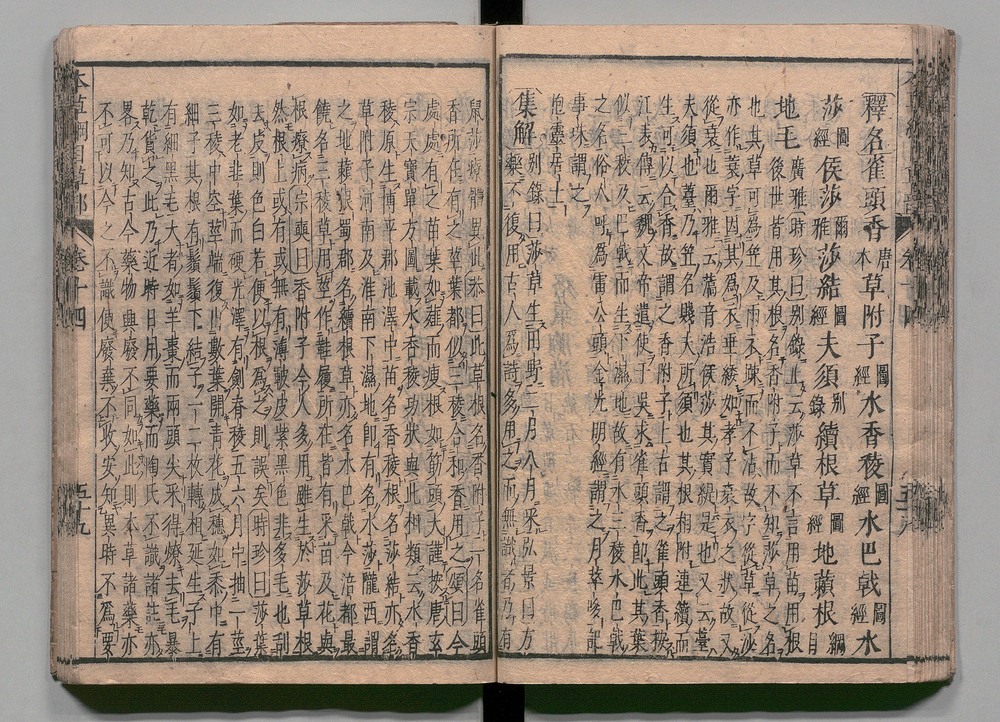 釋名雀頭香唐本草附子圖經水香稜圖經水巴戟圖經水
莎圖經侯莎爾雅莎結圖經夫須別錄續根草圖經地藾根綱目
地毛廣雅時珍曰別錄止云莎草不言用苗用根
後世皆用其根名香附子而不知莎草之名
也其草可為笠及雨衣疎而不沾故字從草從沙
亦作蓑字因其為衣垂緌如孝子衰衣之狀故又
從衰也爾雅云薃音浩侯莎其實緹是也又云薹
夫須也薹乃笠名賤夫所須也其根相附連續而
生可以合香故謂之香附子上古謂之雀頭香按
江表傳云魏文帝遣使于吳求雀頭香即此其葉
似三稜及巴戟而生下濕地故有水三稜水巴戟
之名俗人呼為雷公頭金光明經謂之月萃哆記
事珠謂之
抱靈居士
集解別錄曰莎草生田野二月八月采弘景曰方
藥不復用古人為詩多用之而無識者乃有
鼠莎療體異此恭曰此草根名香附子一名雀頭
香所在有之莖葉都似三稜合和香用之頌曰今
處處有之苗葉如薤而瘦根如筯頭大謹按唐玄
宗天寶單方圖載水香稜功狀與此相類云水香
稜原生博平郡池澤中苗名香稜根名莎結亦名
草附子河南及淮南下濕地即有名水莎隴西謂
之地藾根蜀郡名續根草亦名水巴戟今涪都最
饒名三稜草用莖作鞋履所在皆有采苗及花與
根療病宗奭曰香附子今人多用雖生於莎草根
然根上或有或無有薄皸皮紫黑色非多毛也刮
去皮則色白若便以根為之則誤矣時珍曰莎葉
如老韭葉而硬光澤有劍脊稜五六月中抽一莖
三稜中空莖端復出數葉開青花成穗如黍中有
細子其根有鬚鬚下結子一二枚轉相延生子上
有細黑毛大者如羊棗而兩頭尖采得燎去毛暴
乾貨之此乃近時日用要藥而陶氏不識諸註亦
畧乃知古今藥物興廢不同如此則本草諸藥亦
不可以今之不識便廢棄不收安知異時不為要
本草綱目草部 卷十四 五十九